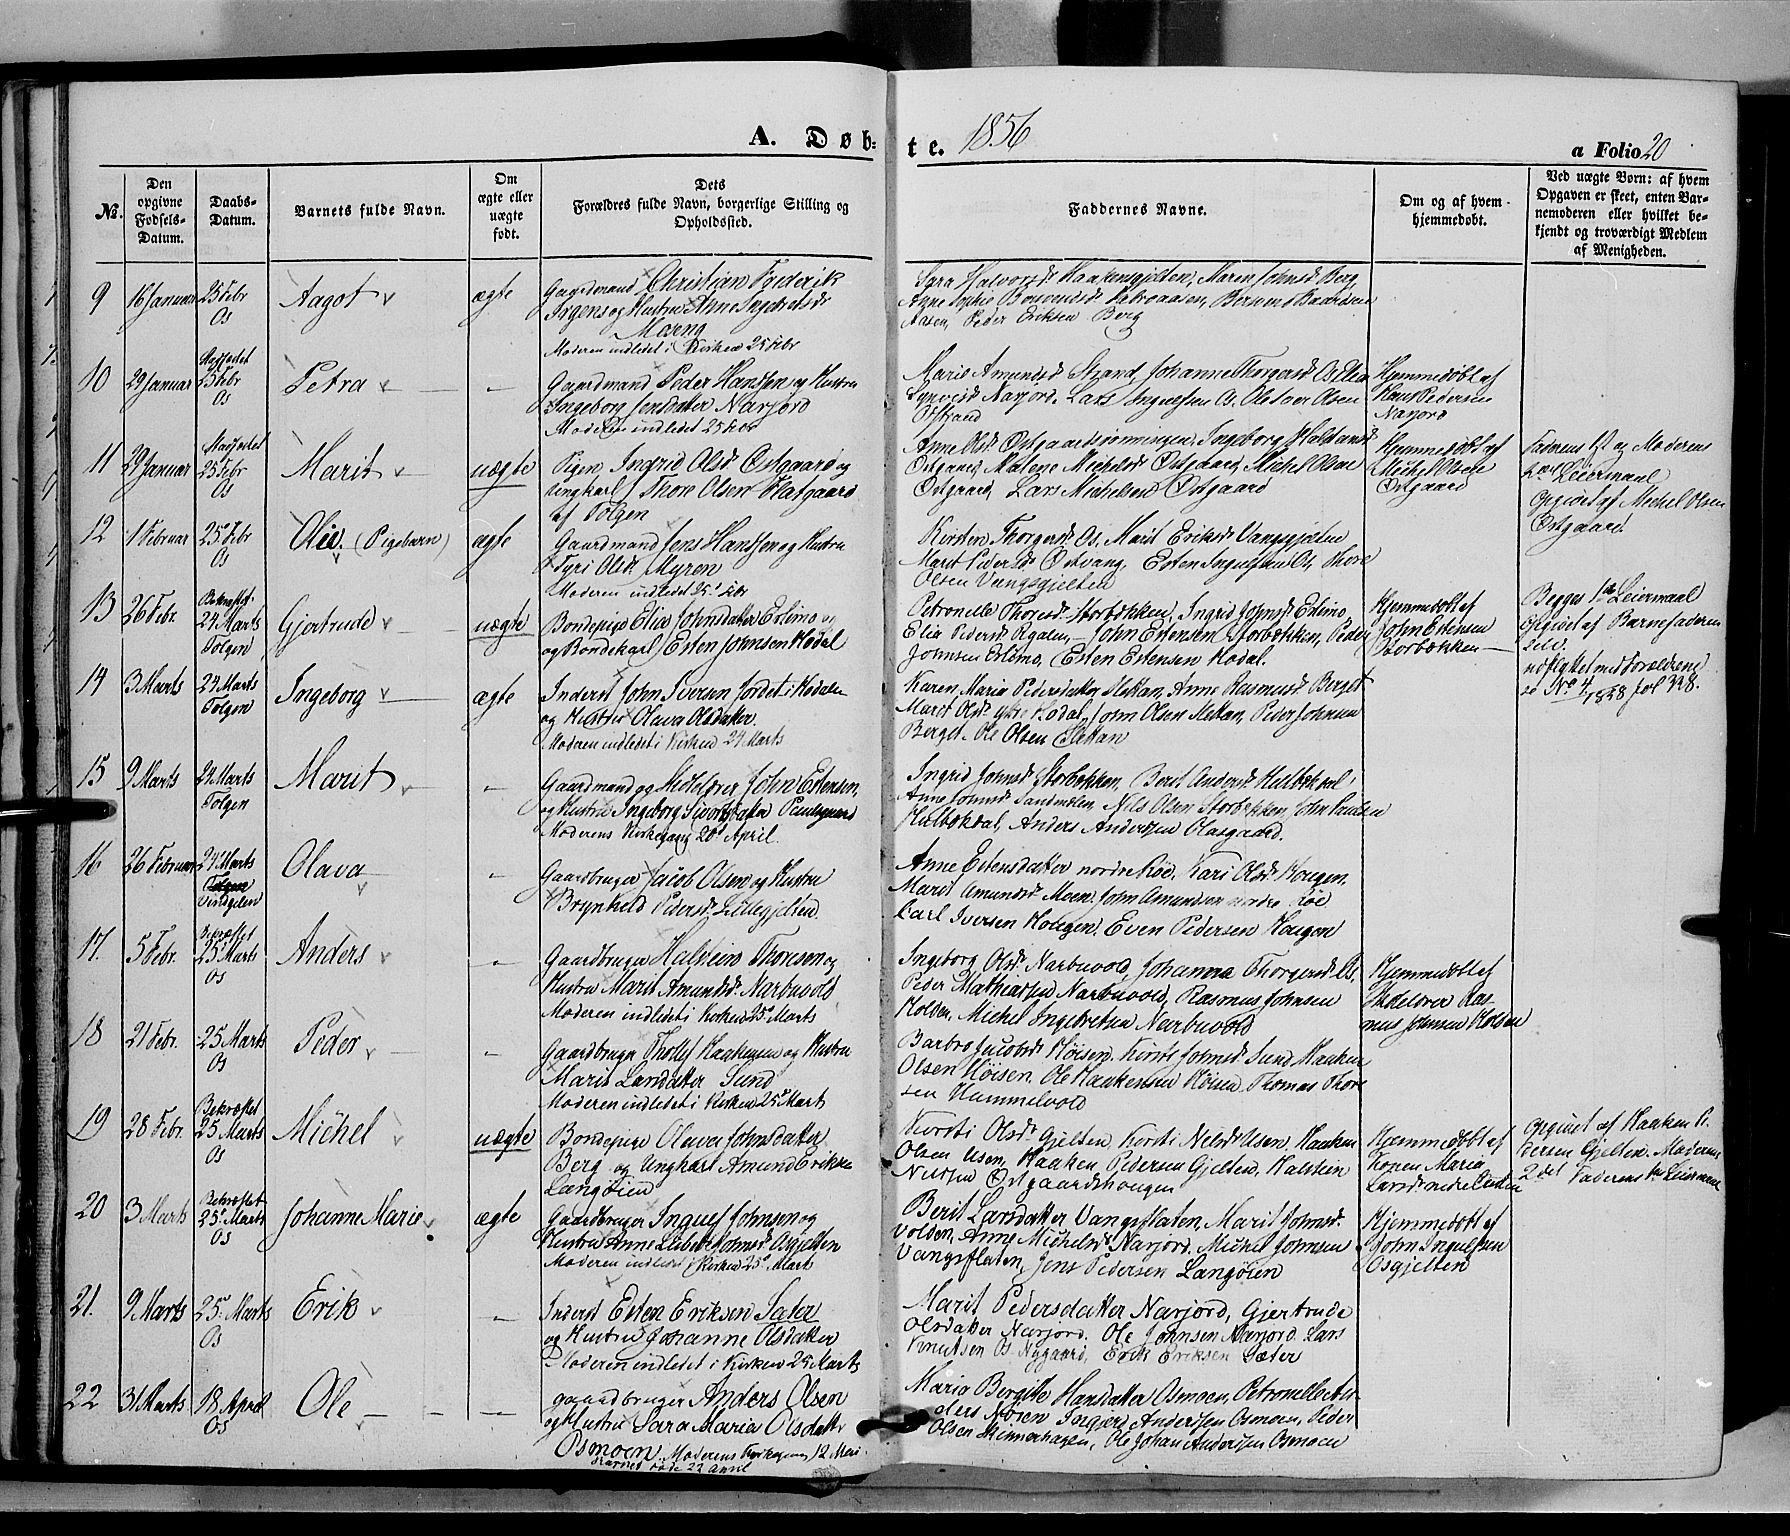 A. Døbte. 1856
a Folio 20
No.
Den opgivne Fødsels-Datum.
Daabs-Datum.
Barnets fulde Navn.
Om ægte eller uægte født.
Dets Forældres fulde Navn, borgerlige Stilling og Opholdssted.
Faddernes Navne.
Om og af hvem hjemmedøbt.
Ved uægte Børn: af hvem Opgaven er skeet, enten Barnemoderen eller hvilket bekjendt og troværdigt Medlem af Menigheden.
9 16 Januar 25 Febr Os Aagot ægte
Gaardmand Christian Frederik
Irgens og Hustru Anne Ingebretsdr
Moderen indledet i Kirken 25 Febr
Halvorsdr Haakensgjelten, Maren Johnsdr Berg
Aasen, Peder Eriksen Berg
10 29 Januar 25 Febr Os Petra —
Gaardmand Peder Hansen og Hustru
Ingeborg Jensdatter Narjord
Moderen indledet 25 Febr
Marie Amundsdr Strand, Johanne Thorgersdr Os, Elia
Narjord. Lars Ingulfsen Os. Ole Iver Olsen
Hjemmedøbt af
Hans Pedersen
Narjord
11 29 Januar 25 Febr Os Marit uægte
Pigen Ingrid Olsdr Østgaard og
Ungkarl Thore Olsen
af Tolgen
Østgaard, Malene Michelsdr Østgaard, Michel Olsen
Østgaard, Lars Michelsen Østgaard
Hjemmedøbt af
Michel Olsen
Østgaard
Faderens 1st og Moderens
Leiermaal
Opgivet af Michel Olsen
Østgaard
12 1 Februar 25 Febr Os Olie. (Pigebarn) ægte
Gaardmand Jens Hansen og Hustru
Tyri Olsdr Myren
Moderen indledet 25 Febr
Kirsten Thorgersdr Os, Marit Eriksdr Vangsgjelten
Marit Pedersdr Østvang, Esten Ingulfsen Os, Thore
Olsen Vangsgjelten
13 26 Febr. Bekræftet 24 Marts Tolgen Gjertrude — uægte
Bondepige Elie Johnsdatter Erlimo og
og Bondekarl Esten Johnsen Hodal
Petronelle Thoresdr Storbækken, Ingrid Johnsdr Erlimo
Elia Pedersdr — John Estensen Storbækken, Peder
Johnsen Erlimo, Esten Estensen Hodal.
Hjemmedøbt af
John Estensen
Storbækken —
Begges 1ste Leiermaal
Opgivet af Barnefaderen
selv.
14 3 Marts 24 Marts Tolgen Ingeborg — ægte
Inderst John Iversen Jordet i Hodalen
og Hustru Olava Olsdatter
Moderen indledet i Kirken 24 Marts
Karen Maria Pedersdatter Slettan, Anne Rasmusdr Berget
Marit Olsdr ytre Hodal, John Olsen Slettan, Peder Johnsen
Berget, Ole Olsen Slettan
udflyttet med Forældrene
se No 4 1858 fol 338.
15 9 Marts 24 Marts Tolgen Marit —
Gaardmand og John Estensen
og Hustru Ingeborg Sivertsdatter
Moderens Kirkegang 20 April.
Ingrid Johnsdr Storbækken, Berit Andersdr Hulbækdal
Nils Olsen Storbækken, John Paulsen
Hulbækdal, Anders Andersen Olasgaard.
16 26 Februar 24 Marts Vingelen Olava —
Gaardbruger Jacob Olsen og Hustru
Brynheld Pedersdr Lillegjelten
Anne Estensdatter nordre Røe, Kari Olsdr Hougen,
Marit Amundsdr Moen, John Amundsen nordre Røe
Carl Iversen Hougen. Even Pedersen Hougen
17. 5 Febr. Bekræftet 25 Marts Os Anders —
Gaardbruger Halstein Thoresen og
Hustru Marit Amundsdr Narbuvold
Moderen indledet i Kirken 25 Marts
Ingeborg Olsdr Narbuvold, Johanna Thorgersdr Os,
Peder Mathiassen Narbuvold, Rasmus Johnsen
Holden, Michel Ingebretsen Narbuvold
Hjemmedøbt af
Skolelærer Ras-
mus Johnsen Holden
18 21 Febr. 25 Marts Os Peder —
Gaardbruger Tholf Haakensen og Hustru
Marit Larsdatter Sund
Moderen indledet i Kirken 25 Marts
Barbro Jacobsdr Høisen, Kirsti Johnsdr Sund, Haaken
Olsen Høisen, Ole Haakensen Høisen, Thomas Thore
sen Hummelvold
19 28 Febr. Bekræftet 25 Marts Os Michel uægte
Bondepige Olava Johnsdatter
Berg og Ungkarl Amund Eriksen
Langøien
Kirsti Olsdr Gjelten, Kirsti Nilsdr Usen, Haaken
Olsen Usen, Haaken Pedersen Gjelten, Halstein
Nilssen Østgaardshougen
Hjemmedøbt af
Konen Maria
Opgivet af Haaken P.
dersen Gjelten. Moderens
2det Faderens 1ste Leiermaal
20 3 Marts Bekræftet 25 Marts Os Johanne Marie ægte
Gaardbruger Ingulf Johnsen og
Hustru Anne Lisbet Johnsdr Osgjelten
Moderen indledet i Kirken 25 Marts
Berit Larsdatter Vangsflaten, Marit Johnsdr
Volden, Anne Michelsdr Narjord, Michel Johnsen
Vangsflaten, Jens Pedersen Langøien
Hjemmedøbt af
John Ingulfsen
Osgjelten
21. 9 Marts 25 Marts Os Erik —
Inderst Esten Eriksen Sæter
og Hustru Johanne Olsdatter
Moderen indledet i Kirken 25 Marts
Marit Pedersdatter Narjord, Gjertrude
Olsdatter Narjord. Ole Johnsen Narjord. Lars
Knutsen Os Nygaard, Erik Eriksen Sæter
22 31 Marts 18 April Os Ole — — —
Gaardbruger Anders Olsen
og Hustru Sara Maria Olsdatter
Osmoen. Moderens Kirkegang 12 Mai.
Barnet døde 22 April
Maria Bergitte Hansdatter Osmoen, Petronelle
Ingjerd Andersen Osmoen, Peder
Olsen, Ole Johan Andersen Osmoen